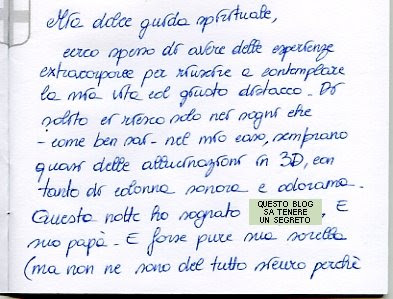 Mia dolce guida spirituale,
cerco spesso di avere delle esperienze
extracorporee per riuscire a contemplare
la mia vita col giusto distacco. Di
solito ci riesco solo nei sogni che
- come ben sai - nel mio caso, sembrano
quasi delle allucinazioni in 3D, con
tanto di colonna sonora e odorama.
Questa notte ho sognato QUESTO BLOG SA TENERE UN SEGRETO, E
suo papà. E forse pure sua sorella
(ma non ne sono del tutto sicuro perché